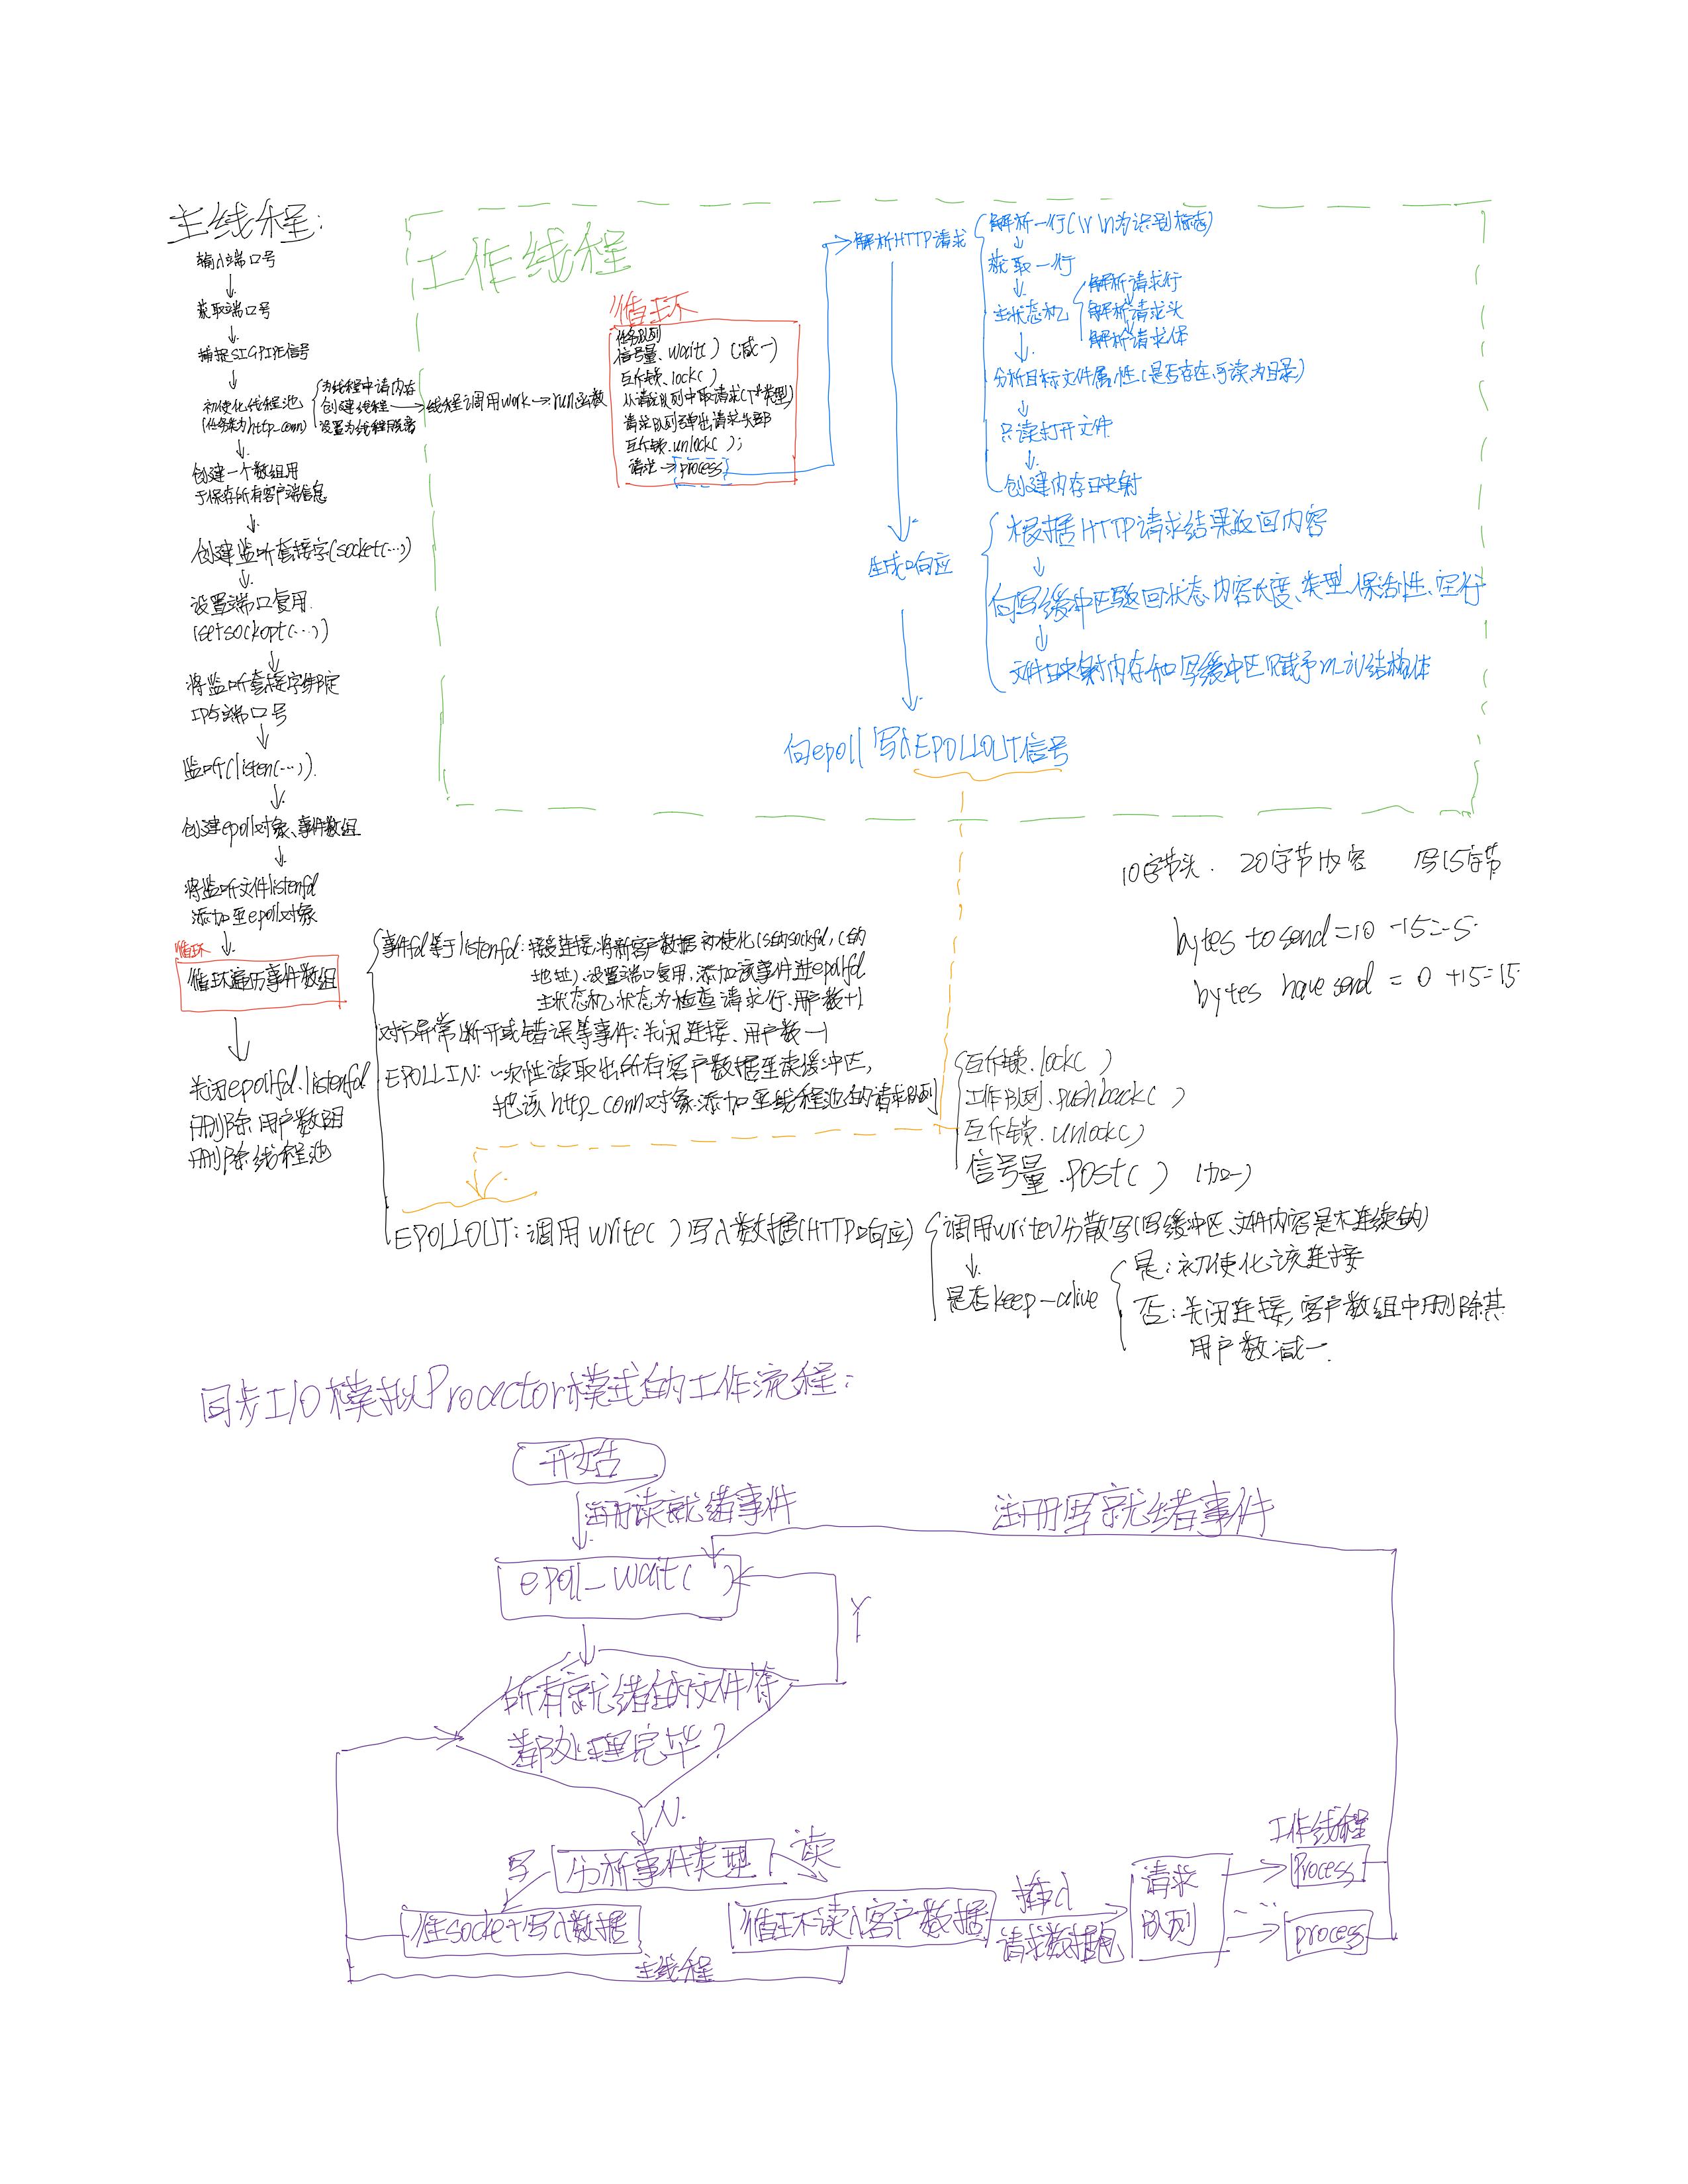 主线程:
输入端口号
获取端口号
捕捉SIGPIPE信号
初使化线程池
(任务类为http_conn)
为线程申请内存
创建线程
设置为线程脱离
线程调用work
run函数
创建一个数组用
于保存所有客户端信息
创建监听套接字(socket(...))
设置端口复用
(setsockopt(...))
将监听套接字绑定
IP与端口号
监听(listen(...)).
创建epoll对象、事件数组
将监听文件listenfd
添加至epoll对象
循环
循环遍历事件数组
关闭epollfd.listenfd
删除用户数组
删除线程池
工作线程
循环
任务队列
信号量.wait() (减一)
互斥锁.lock()
从请求队列中取请求(T*类型)
请求队列弹出请求头部
互斥锁.unlock();
请求→process
解析HTTP请求
解析一行(\r\n为识别标志)
获取一行
主状态机
解析请求行
解析请求头
解析请求体
分析目标文件属性(是否存在、可读、为目录)
只读打开文件
创建内存映射
生成响应
根据HTTP请求结果返回内容
向写缓冲区写回状态、内容长度、类型、保活性、空行
文件映射内存和写缓冲区赋予m_iv结构体
向epoll写入EPOLLOUT信号
10字节头. 20字节内容 写15字节
bytes to send=10-15=-5
bytes have send = 0+15=15
事件fd等于listenfd:接受连接,将新客户数据初使化(它的sockfd,它的
地址),设置端口复用,添加该事件进epollfd
主状态机状态为检查请求行,用户数+1
对方异常断开或错误等事件:关闭连接、用户数-1
EPOLLIN:一次性读取出所有客户数据至读缓冲区,
把该http_conn对象添加至线程池的请求队列
互斥锁.lock()
工作队列.pushback()
互斥锁.unlock()
信号量.post() (加一)
EPOLLOUT:调用write()写入数据(HTTP响应)
调用writev分散写(写缓冲区、文件内容是不连续的)
是否keep-alive
是:初使化该连接
否:关闭连接,客户数组中删除其
用户数减一.
同步I/O模拟Proactor模式的工作流程:
开始
注册读就绪事件
注册写就绪事件
epoll_wait()
Y
所有就绪的文件符
都处理完毕?
N.
写
分析事件类型
读
往socket写入数据
循环读入客户数据
插入
请求数据包
请求
队列
工作线程
process
...
process
主线程